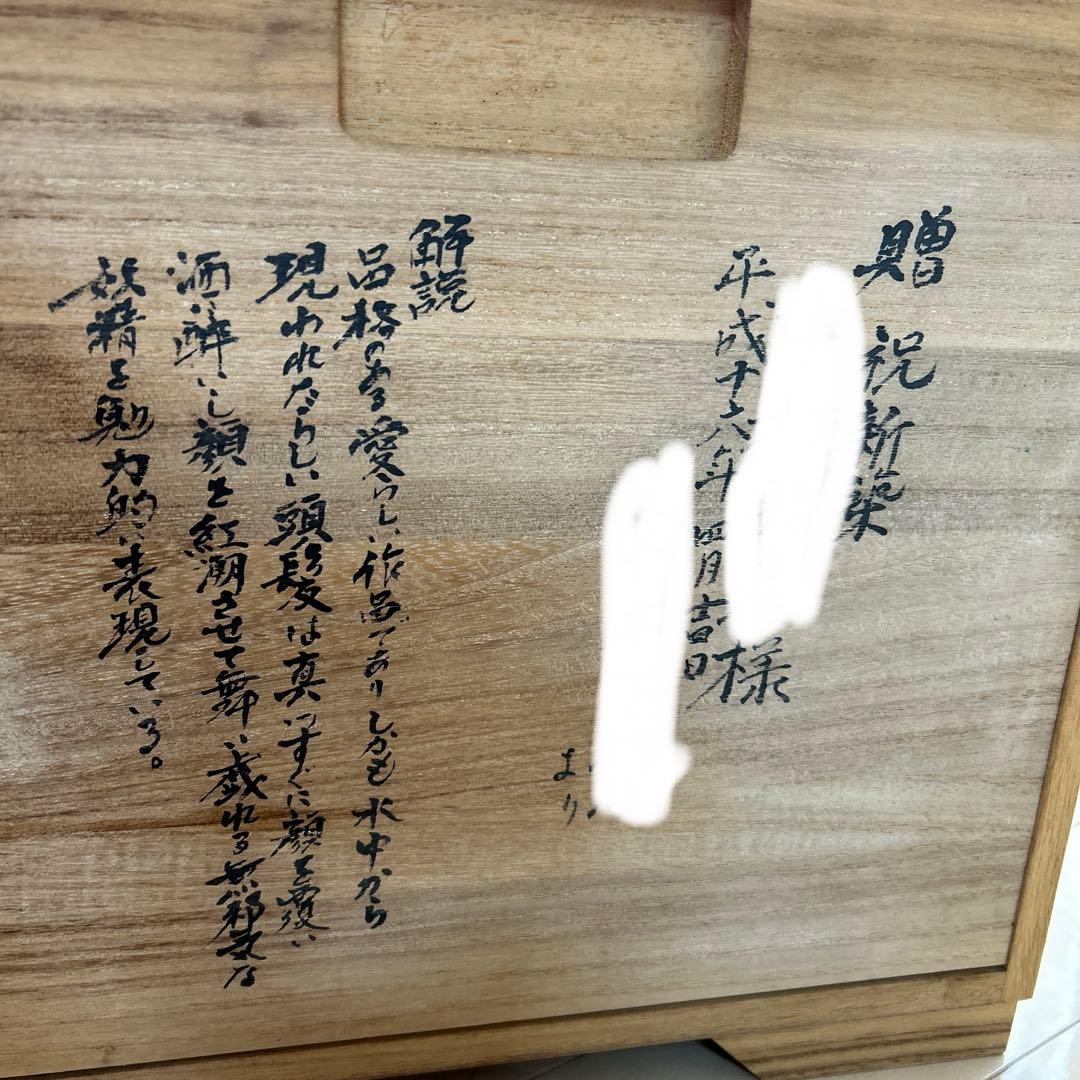 贈 祝新築
様
平成十六年四月吉日
より
解説
品格のある愛らしい作品でありしかも水中から
現われたらしい頭髪は真っすぐに顔を覆い
酒に酔いし顔を紅潮させて舞い戯れる無邪気な
妖精を魅力的に表現している。